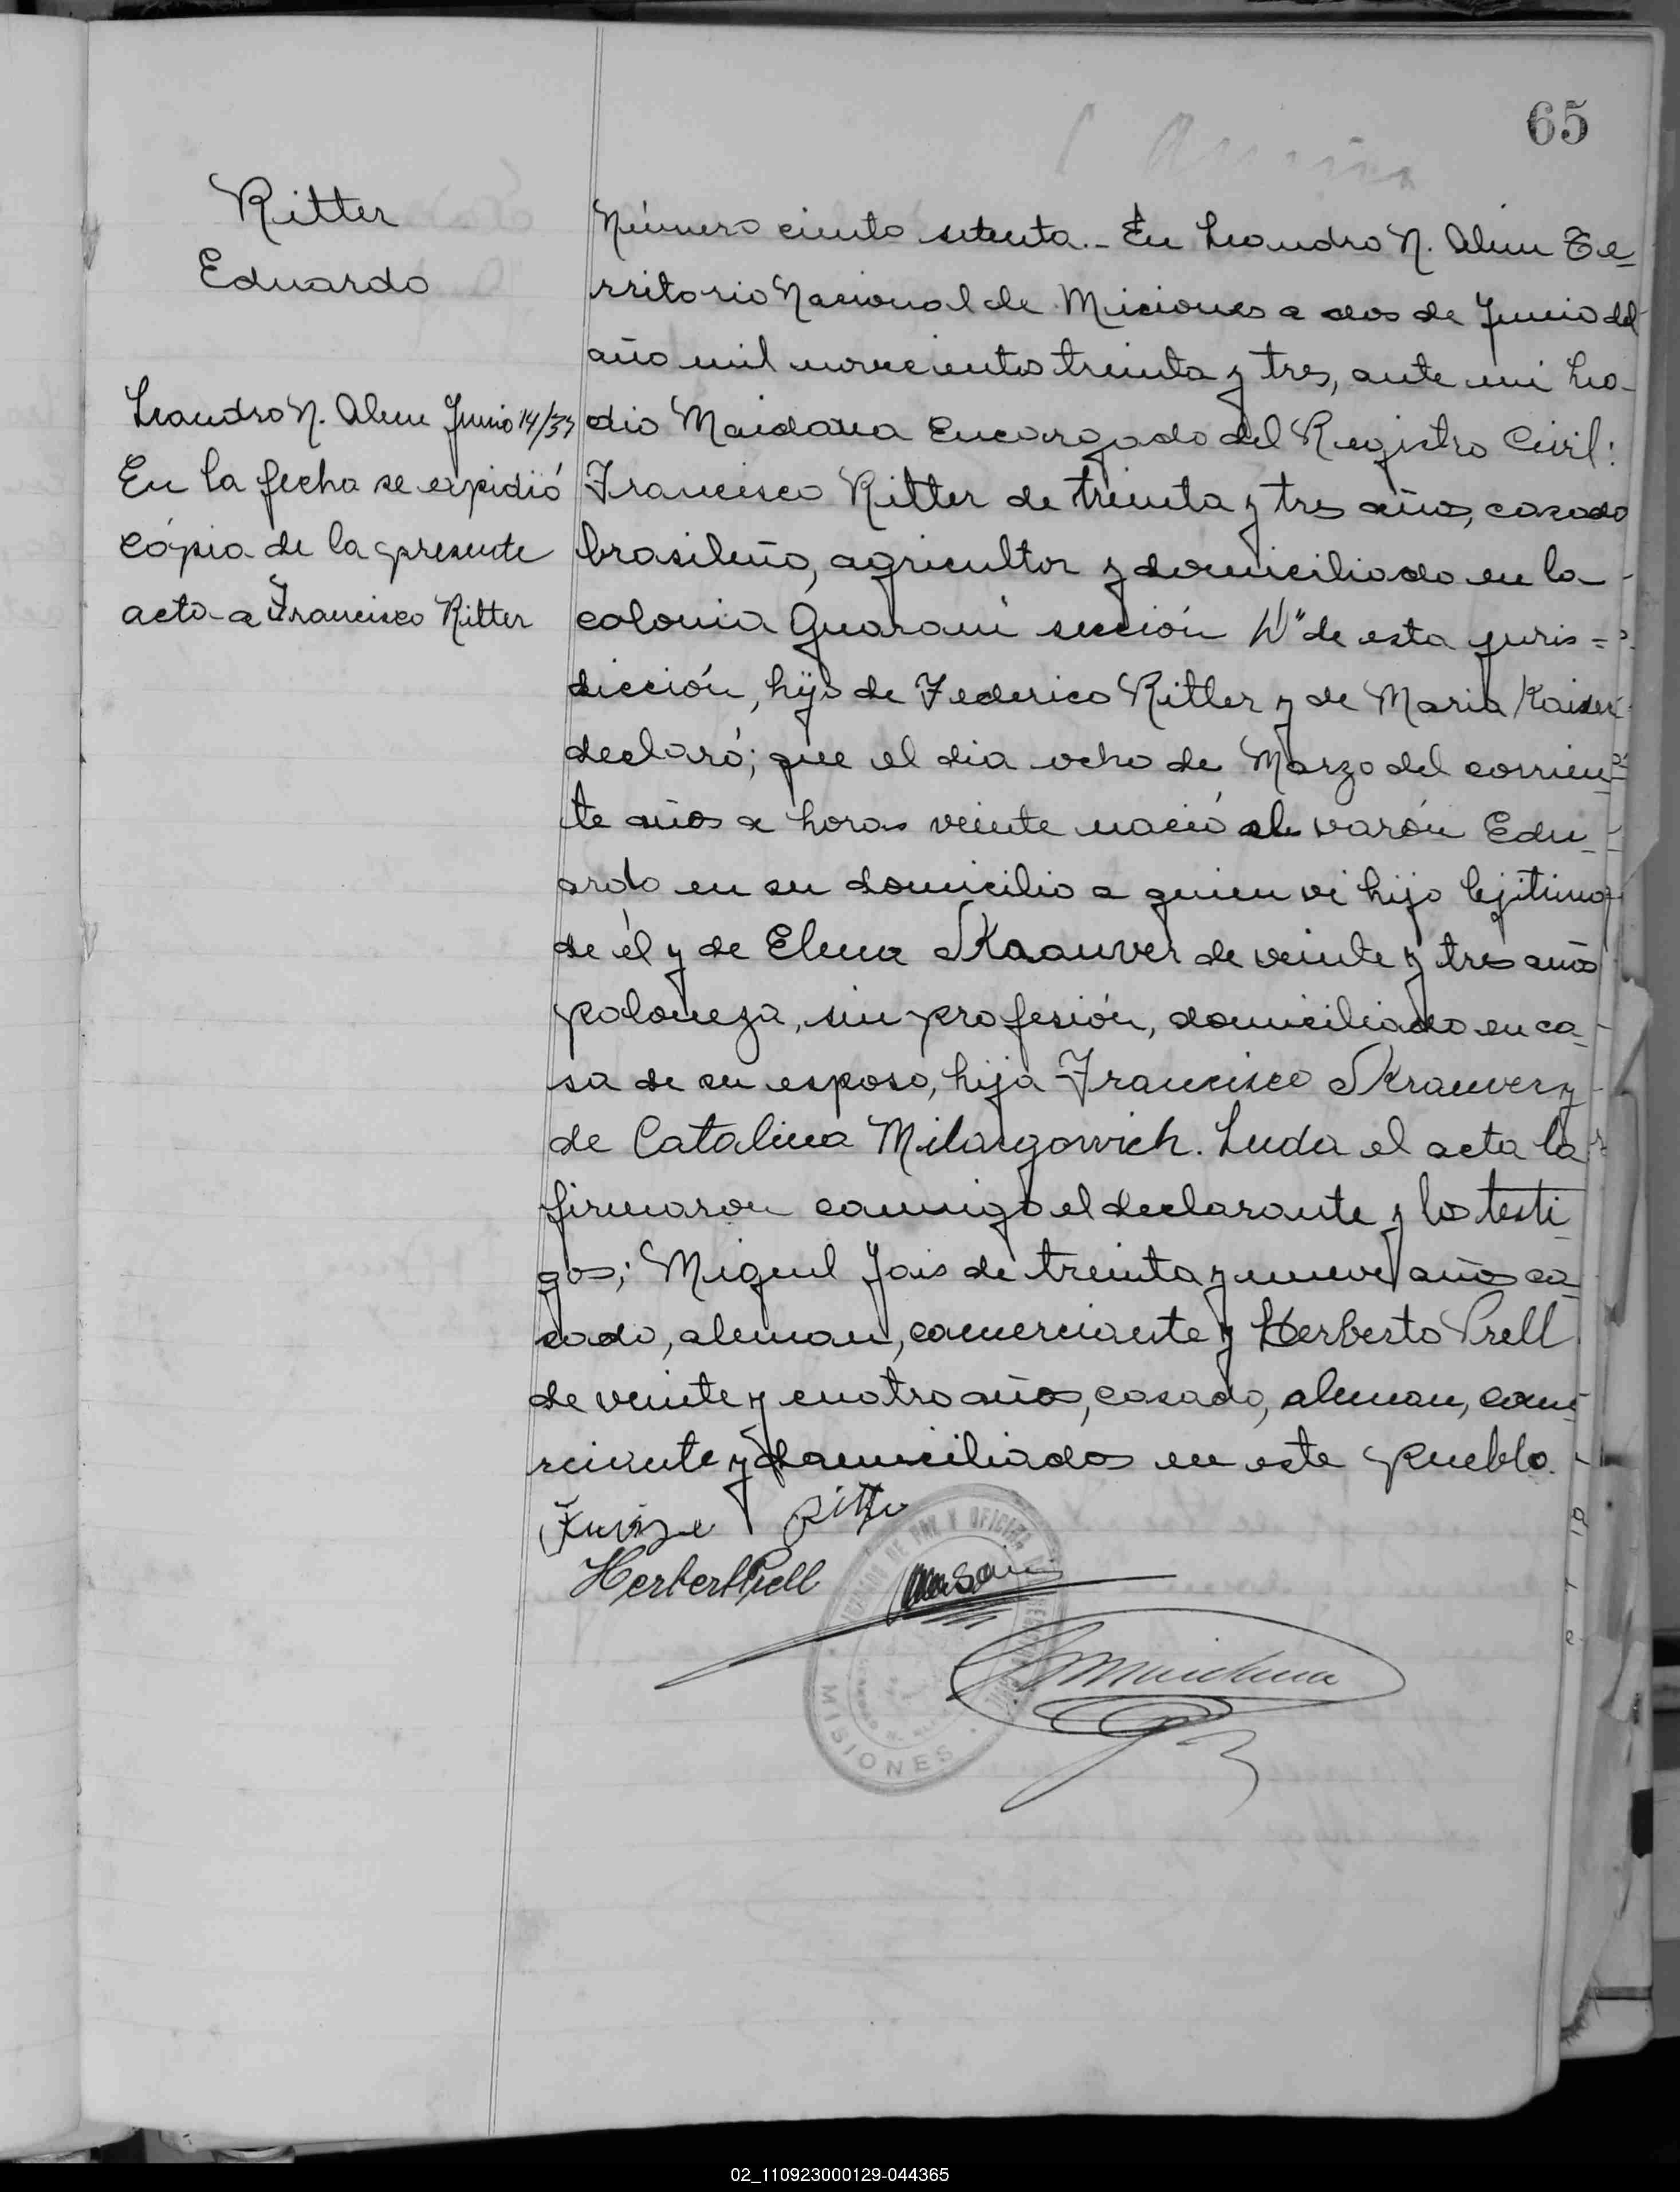 65
Ritter
Eduardo
Leandro N. Alem Junio 14/37
En la fecha se expidió
cópia de la presente
acta a Francisco Ritter
Número ciento setenta.- En Leandro N. Alem Te-
rritorio Nacional de Miciones a dos de Junio del
año mil novecientos treinta y tres, ante mi Leo-
dio Maidana Encargado del Registro Civil:
Francisco Ritter de treinta y tres años, casado
brasileño, agricultor y domiciliado en la
colonia Guaraní sección de esta juris=
dicción, hijo de Federico Ritter y de Maria Kaiser
declaró; que el dia ocho de Marzo del corrien-
te años a horas veinte nació el varón Edu-
ardo en su domicilio a quien vi hijo lejitimo
de él y de Elena Skaanver de veinte y tres años
poloneza, sin profesión, domiciliado en ca-
sa de su esposo, hija Francisco Skranver y
de Catalina Milargowich. Leida el acta la
firmaron conmigo el declarante y los testi-
gos; Miguel Jais de treinta y nueve años ca-
sado, aleman, comerciante y Herberto Prell
de veinte y cuatro años, casado, aleman, come
rciante y domiciliados en este Pueblo.
Ritter
Herbert Prell
Maidana
JUZGADO DE PAZ Y OFICINA DE REGISTRO CIVIL
MISIONES
02_110923000129-044365